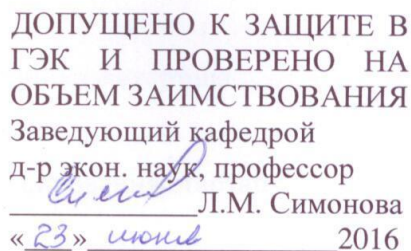 ДОПУЩЕНО К ЗАЩИТЕ В
ГЭК И ПРОВЕРЕНО НА
ОБЪЕМ ЗАИМСТВОВАНИЯ
Заведующий кафедрой
д-р экон. наук, профессор
Л.М. Симонова
«23» июня 2016